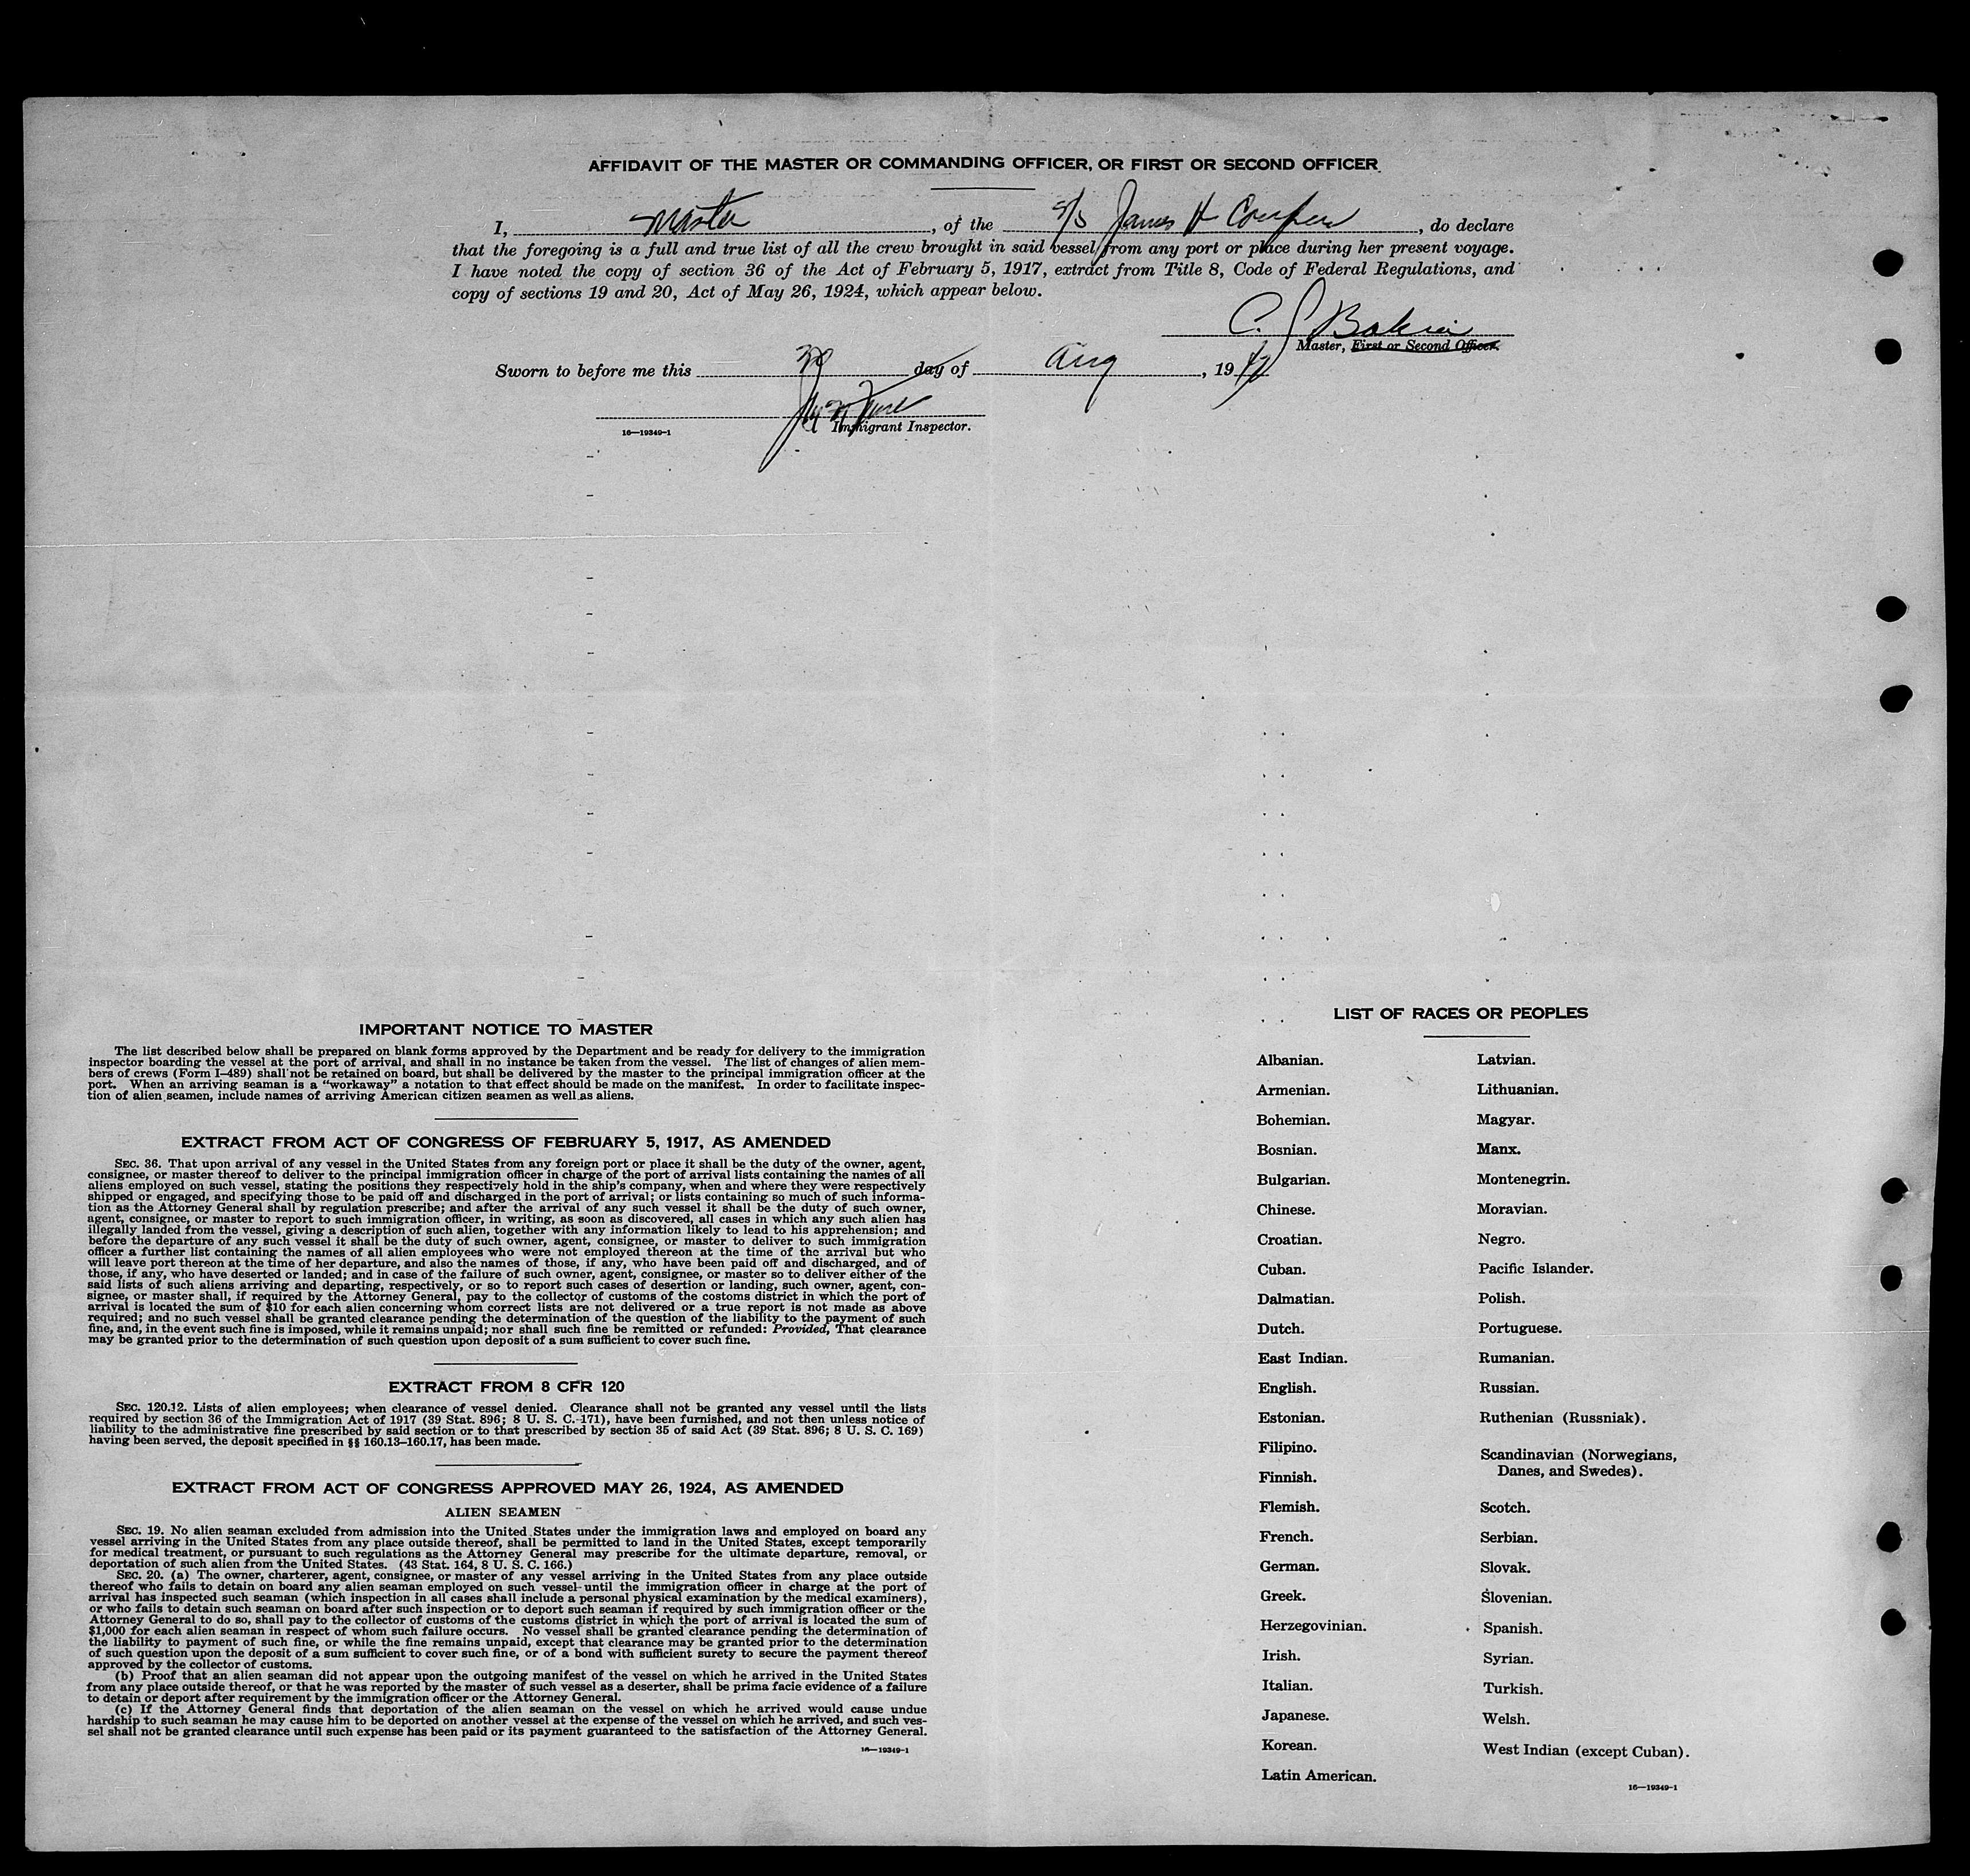 AFFIDAVIT OF THE MASTER OR COMMANDING OFFICER, OR FIRST OR SECOND OFFICER
I, Master, of the S/S James H Couper, do declare
that the foregoing is a full and true list of all the crew brought in said vessel from any port or place during her present voyage.
I have noted the copy of section 36 of the Act of February 5, 1917, extract from Title 8, Code of Federal Regulations, and
copy of sections 19 and 20, Act of May 26, 1924, which appear below.
C.
Master, First or Second Officer.
Sworn to before me this day of Aug, 19
Immigrant Inspector.
16—19349-1
IMPORTANT NOTICE TO MASTER
The list described below shall be prepared on blank forms approved by the Department and be ready for delivery to the immigration
inspector boarding the vessel at the port of arrival, and shall in no instance be taken from the vessel. The list of changes of alien mem-
bers of crews (Form I-489) shall not be retained on board, but shall be delivered by the master to the principal immigration officer at the
port. When an arriving seaman is a “workaway” a notation to that effect should be made on the manifest. In order to facilitate inspec-
tion of alien seamen, include names of arriving American citizen seamen as well as aliens.
EXTRACT FROM ACT OF CONGRESS OF FEBRUARY 5, 1917, AS AMENDED
SEC. 36. That upon arrival of any vessel in the United States from any foreign port or place it shall be the duty of the owner, agent,
consignee, or master thereof to deliver to the principal immigration officer in charge of the port of arrival lists containing the names of all
aliens employed on such vessel, stating the positions they respectively hold in the ship's company, when and where they were respectively
shipped or engaged, and specifying those to be paid off and discharged in the port of arrival; or lists containing so much of such informa-
tion as the Attorney General shall by regulation prescribe; and after the arrival of any such vessel it shall be the duty of such owner,
agent, consignee, or master to report to such immigration officer, in writing, as soon as discovered, all cases in which any such alien has
illegally landed from the vessel, giving a description of such alien, together with any information likely to lead to his apprehension; and
before the departure of any such vessel it shall be the duty of such owner, agent, consignee, or master to deliver to such immigration
officer a further list containing the names of all alien employees who were not employed thereon at the time of the arrival but who
will leave port thereon at the time of her departure, and also the names of those, if any, who have been paid off and discharged, and of
those, if any, who have deserted or landed; and in case of the failure of such owner, agent, consignee, or master so to deliver either of the
said lists of such aliens arriving and departing, respectively, or so to report such cases of desertion or landing, such owner, agent, con-
signee, or master shall, if required by the Attorney General, pay to the collector of customs of the costoms district in which the port of
arrival is located the sum of $10 for each alien concerning whom correct lists are not delivered or a true report is not made as above
required; and no such vessel shall be granted clearance pending the determination of the question of the liability to the payment of such
fine, and, in the event such fine is imposed, while it remains unpaid; nor shall such fine be remitted or refunded: Provided, That clearance
may be granted prior to the determination of such question upon deposit of a sum sufficient to cover such fine.
EXTRACT FROM 8 CFR 120
SEC. 120.12. Lists of alien employees; when clearance of vessel denied. Clearance shall not be granted any vessel until the lists
required by section 36 of the Immigration Act of 1917 (39 Stat. 896; 8 U. S. C. 171), have been furnished, and not then unless notice of
liability to the administrative fine prescribed by said section or to that prescribed by section 35 of said Act (39 Stat. 896; 8 U. S. C. 169)
having been served, the deposit specified in §§ 160.13–160.17, has been made.
EXTRACT FROM ACT OF CONGRESS APPROVED MAY 26, 1924, AS AMENDED
ALIEN SEAMEN
SEC. 19. No alien seaman excluded from admission into the United States under the immigration laws and employed on board any
vessel arriving in the United States from any place outside thereof, shall be permitted to land in the United States, except temporarily
for medical treatment, or pursuant to such regulations as the Attorney General may prescribe for the ultimate departure, removal, or
deportation of such alien from the United States. (43 Stat. 164, 8 U. S. C. 166.)
SEC. 20. (a) The owner, charterer, agent, consignee, or master of any vessel arriving in the United States from any place outside
thereof who fails to detain on board any alien seaman employed on such vessel until the immigration officer in charge at the port of
arrival has inspected such seaman (which inspection in all cases shall include a personal physical examination by the medical examiners),
or who fails to detain such seaman on board after such inspection or to deport such seaman if required by such immigration officer or the
Attorney General to do so, shall pay to the collector of customs of the customs district in which the port of arrival is located the sum of
$1,000 for each alien seaman in respect of whom such failure occurs. No vessel shall be granted clearance pending the determination of
the liability to payment of such fine, or while the fine remains unpaid, except that clearance may be granted prior to the determination
of such question upon the deposit of a sum sufficient to cover such fine, or of a bond with sufficient surety to secure the payment thereof
approved by the collector of customs.
(b) Proof that an alien seaman did not appear upon the outgoing manifest of the vessel on which he arrived in the United States
from any place outside thereof, or that he was reported by the master of such vessel as a deserter, shall be prima facie evidence of a failure
to detain or deport after requirement by the immigration officer or the Attorney General.
(c) If the Attorney General finds that deportation of the alien seaman on the vessel on which he arrived would cause undue
hardship to such seaman he may cause him to be deported on another vessel at the expense of the vessel on which he arrived, and such ves-
sel shall not be granted clearance until such expense has been paid or its payment guaranteed to the satisfaction of the Attorney General.
16—19349-1
LIST OF RACES OR PEOPLES
Albanian.
Armenian.
Bohemian.
Bosnian.
Bulgarian.
Chinese.
Croatian.
Cuban.
Dalmatian.
Dutch.
East Indian.
English.
Estonian.
Filipino.
Finnish.
Flemish.
French.
German.
Greek.
Herzegovinian.
Irish.
Italian.
Japanese.
Korean.
Latin American.
Latvian.
Lithuanian.
Magyar.
Manx.
Montenegrin.
Moravian.
Negro.
Pacific Islander.
Polish.
Portuguese.
Rumanian.
Russian.
Ruthenian (Russniak).
Scandinavian (Norwegians,
Danes, and Swedes).
Scotch.
Serbian.
Slovak.
Slovenian.
Spanish.
Syrian.
Turkish.
Welsh.
West Indian (except Cuban).
16—19349-1